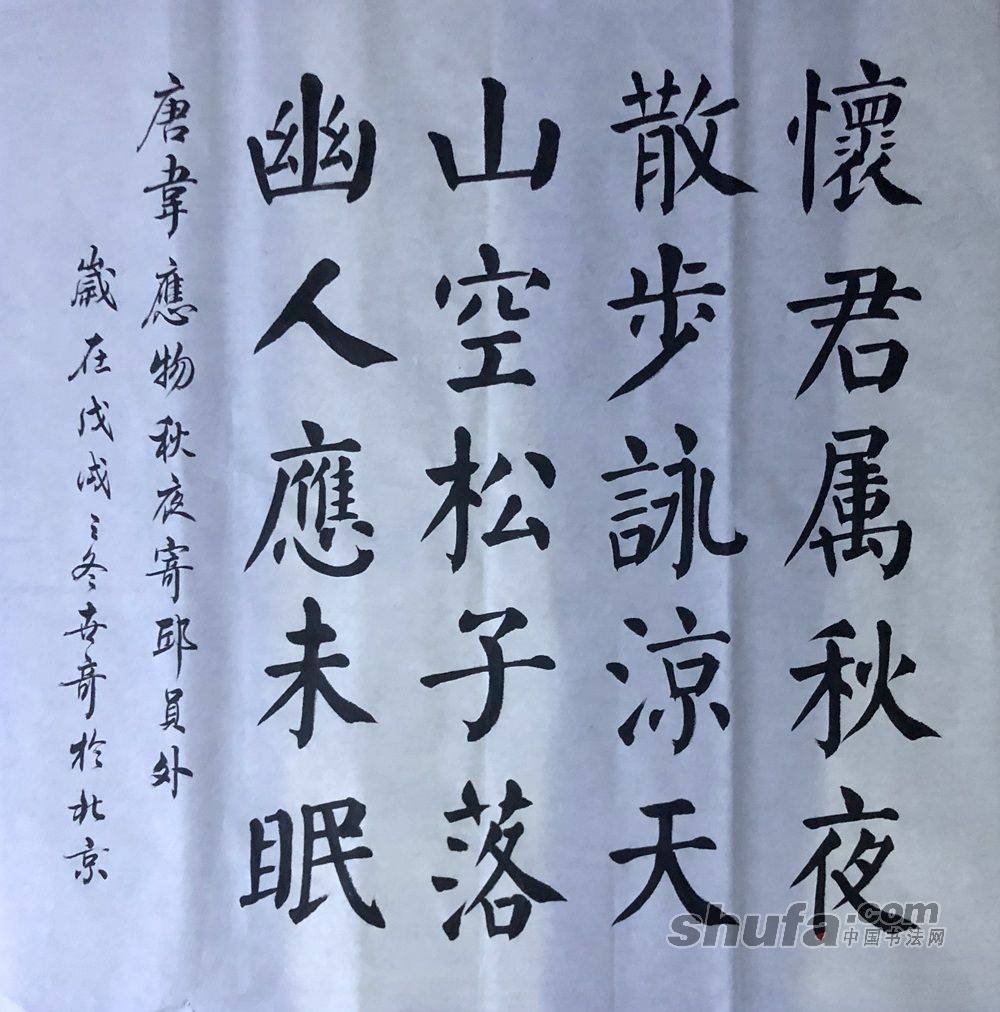 懷君属秋夜
散步詠涼天
山空松子落
幽人應未眠
唐韋應物秋夜寄邱員外
歲在戊戌之冬喜奇於北京
shufa.com
中国书法网